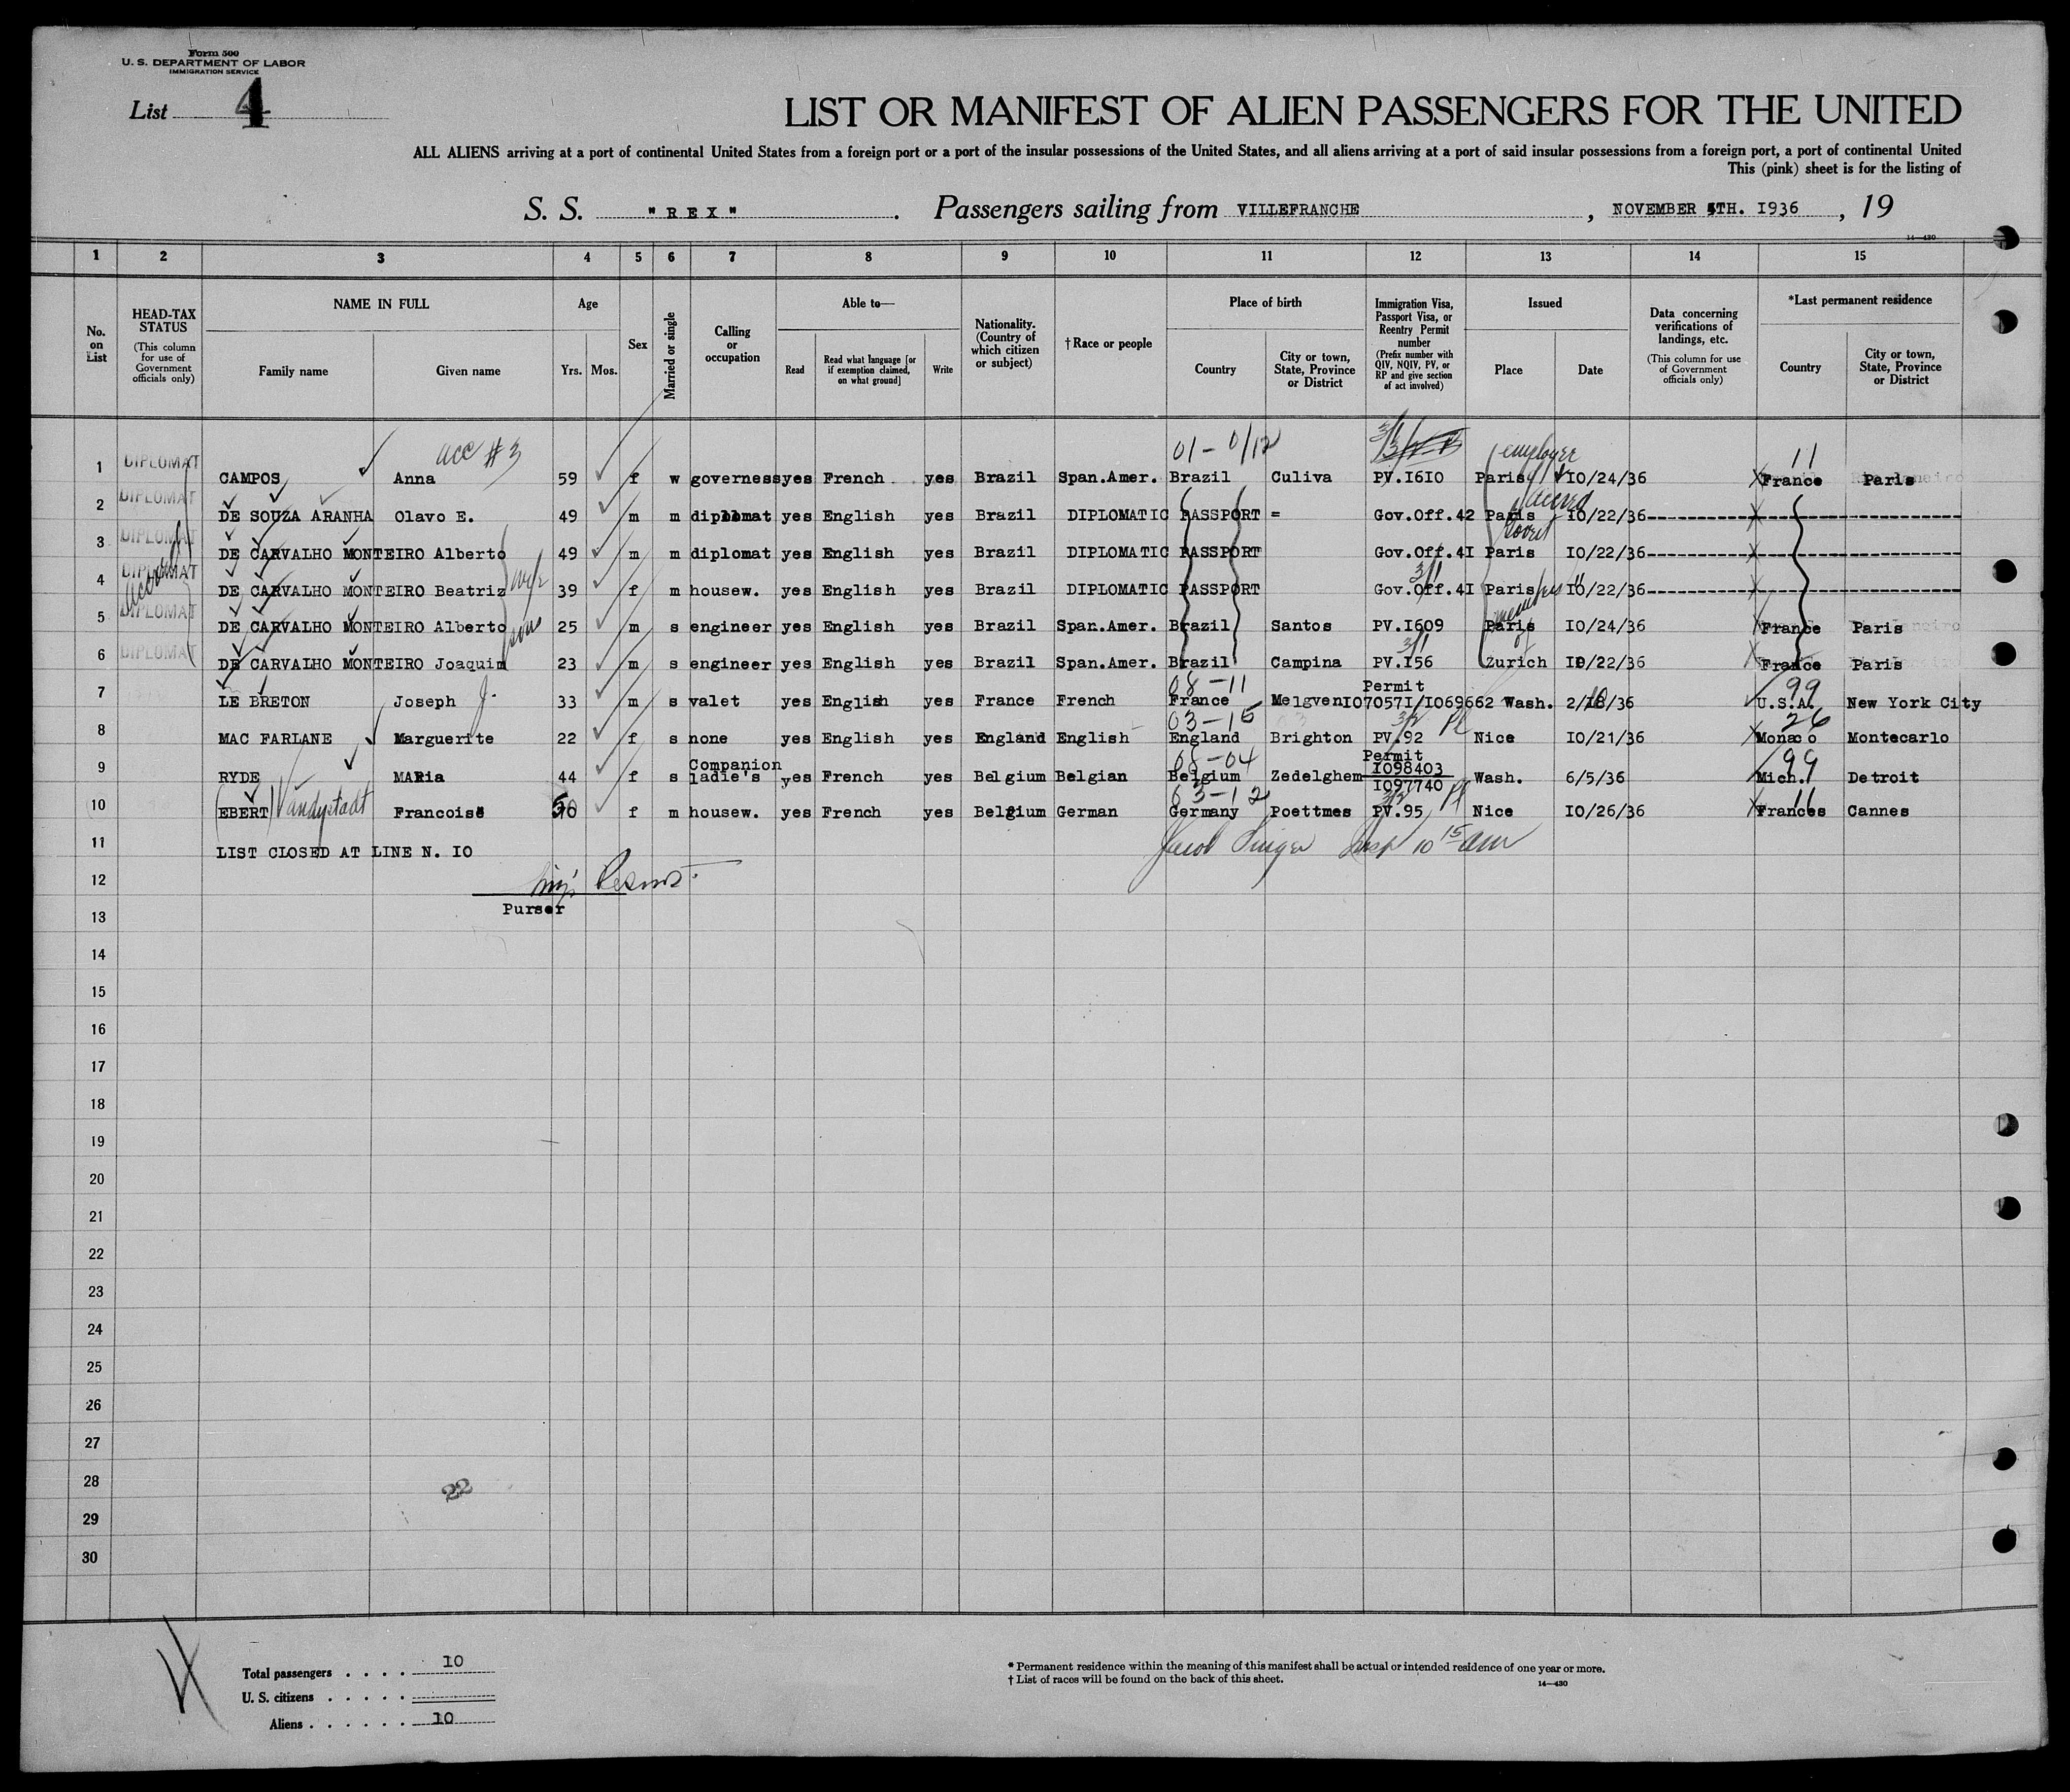 Form 500
U. S. DEPARTMENT OF LABOR
IMMIGRATION SERVICE
List 4
LIST OR MANIFEST OF ALIEN PASSENGERS FOR THE UNITED
ALL ALIENS arriving at a port of continental United States from a foreign port or a port of the insular possessions of the United States, and all aliens arriving at a port of said insular possessions from a foreign port, a port of continental United
This (pink) sheet is for the listing of
S. S. "REX". Passengers sailing from VILLEFRANCHE, NOVEMBER 5TH. I936, 19
14—430
1 2 3 4 5 6 7 8 9 10 11 12 13 14 15
No. on List
HEAD-TAX STATUS (This column for use of Government officials only)
NAME IN FULL Family name Given name
Age Yrs. Mos.
Sex
Married or single
Calling or occupation
Able to— Read Read what language [or if exemption claimed, on what ground] Write
Nationality. (Country of which citizen or subject)
†Race or people
Place of birth Country City or town, State, Province or District
Immigration Visa, Passport Visa, or Reentry Permit number (Prefix number with QIV, NQIV, PV, or RP and give section of act involved)
Issued Place Date
Data concerning verifications of landings, etc. (This column for use of Government officials only)
*Last permanent residence Country City or town, State, Province or District
acc #3 01-0/12 employer 11
1 DIPLOMAT CAMPOS Anna 59 f w governess yes French yes Brazil Span.Amer. Brazil Culiva PV.I6I0 Paris I0/24/36 France Paris
2 DIPLOMAT DE SOUZA ARANHA Olavo E. 49 m m diplomat yes English yes Brazil DIPLOMATIC PASSPORT = Gov.Off.42 Paris I0/22/36
3 DIPLOMAT DE CARVALHO MONTEIRO Alberto 49 m m diplomat yes English yes Brazil DIPLOMATIC PASSPORT Gov.Off.4I Paris I0/22/36
3/1
4 DIPLOMAT DE CARVALHO MONTEIRO Beatriz wife 39 f m housew. yes English yes Brazil DIPLOMATIC PASSPORT Gov.Off.4I Paris I0/22/36
5 DIPLOMAT DE CARVALHO MONTEIRO Alberto sons 25 m s engineer yes English yes Brazil Span.Amer. Brazil Santos PV.I609 Paris I0/24/36 France Paris
3/1
6 DIPLOMAT DE CARVALHO MONTEIRO Joaquim 23 m s engineer yes English yes Brazil Span.Amer. Brazil Campina PV.I56 Zurich I0/22/36 France Paris
08-11 Permit 99
7 LE BRETON Joseph J. 33 m s valet yes English yes France French France Melgven I07057I/I069662 Wash. 2/18/36 U.S.A. New York City
03-15 3/2 26
8 MAC FARLANE Marguerite 22 f s none yes English yes England English England Brighton PV.92 Nice I0/21/36 Monaco Montecarlo
Companion 08-04 Permit 99
9 RYDE MARia 44 f s ladie's yes French yes Belgium Belgian Belgium Zedelghem I098403 I097740 Wash. 6/5/36 Mich. Detroit
03-12 3/2 11
10 (EBERT) Vandystadt Francoise 50 f m housew. yes French yes Belgium German Germany Poettmes PV.95 Nice I0/26/36 Frances Cannes
11 LIST CLOSED AT LINE N. I0
Jacob Singer Insp 10 15 am
12
Purser
13
14
15
16
17
18
19
20
21
22
23
24
25
26
27
28
22
29
30
Total passengers . . . . 10
U. S. citizens . . . . .
Aliens . . . . . . 10
* Permanent residence within the meaning of this manifest shall be actual or intended residence of one year or more.
† List of races will be found on the back of this sheet.
14—430